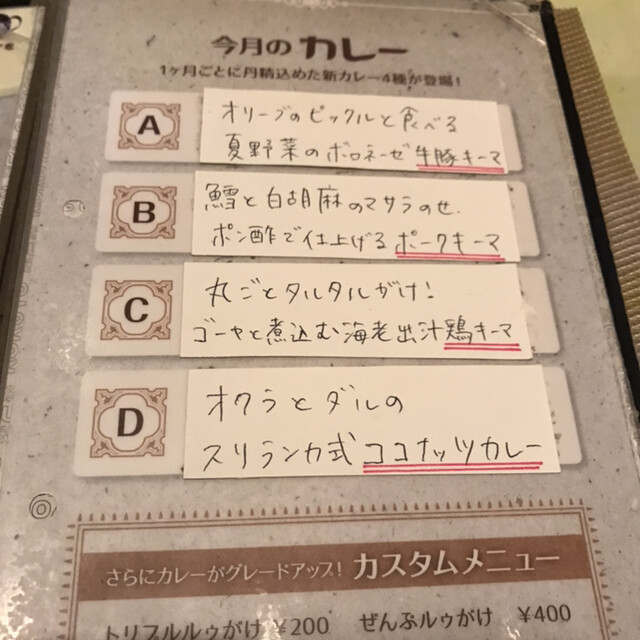 今月のカレー
1ヶ月ごとに丹精込めた新カレー4種が登場!
A
オリーブのピックルと食べる
夏野菜のボロネーゼ牛豚キーマ
B
鱈と白胡麻のマサラのせ
ポン酢で仕上げるポークキーマ
C
丸ごとタルタルがけ!
ゴーヤと煮込む海老出汁鶏キーマ
D
オクラとダルの
スリランカ式ココナッツカレー
さらにカレーがグレードアップ! カスタムメニュー
トリプルルゥがけ ¥200 ぜんぶルゥがけ ¥400